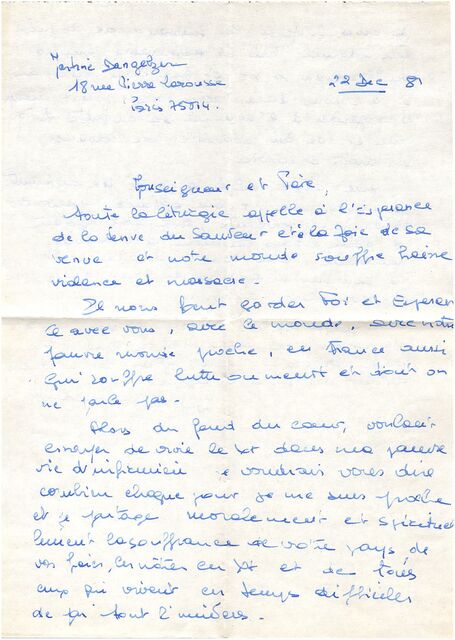 18 rue Pierre Larousse
Paris 75014.
22 Dec 81
Monseigneur et Père,
toute la liturgie appelle à l'Espérance
de la venue du Sauveur et à la Joie de sa
venue et notre monde souffre haine
violence et massacre.
Il nous faut garder Foi et Espéran
ce avec vous, avec le monde, avec notre
pauvre monde proche, en France aussi
qui souffre lutte ou meurt et dont on
ne parle pas.
Alors du fond du cœur, voulant
essayer de vivre le Xt dans ma pauvre
vie d'infirmière je voudrais vous dire
combien chaque jour je me sens proche
et je partage moralement et spirituel
lement la souffrance de votre pays de
vos frères en Xt et de tous
ceux qui vivent en temps difficiles
de par tout l'univers.